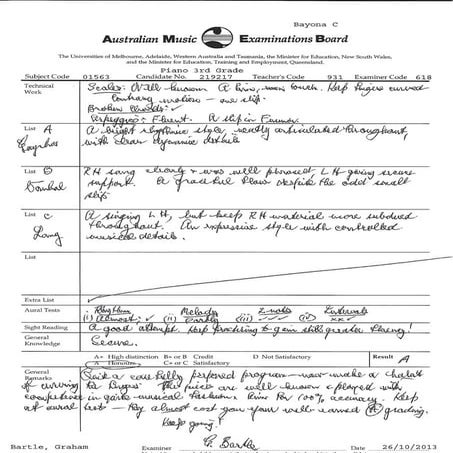 Bayona C
Australian Music Examinations Board
The Universities of Melbourne, Adelaide, Western Australia and Tasmania, the Minister for Education, New South Wales,
and the Minister for Education, Training and Employment, Queensland.
Piano 3rd Grade
Subject Code 01563 Candidate No. 219217 Teacher's Code 931 Examiner Code 618
Technical Work
Scales: Well-known A firm, even touch. Keep fingers curved
Contrary motion - one slip.
Broken Chords:
Arpeggios: Fluent. A slip in
List A
A bright rhythmic style, neatly articulated throughout,
with clear dynamic details
List B
RH sang clearly & was well phrased, LH giving secure
support. A graceful flow despite the odd small
slip
List C
A singing LH, but keep RH material more subdued
throughout. An expressive style with controlled
musical details.
List
Extra List
Aural Tests Rhythm Melody 2 notes Intervals
(i) Almost: (ii) Partly (iii) (iv)
Sight Reading A good attempt. Keep practising to gain still greater fluency!
General Knowledge Secure.
A+ High distinction B+ or B Credit D Not Satisfactory Result A
A Honours C+ or C Satisfactory
General Remarks
Quite a carefully prepared program - now make a
of curving the fingers. The pieces are well known & played with
musical fashion. Aim for 100% accuracy. Keep
at aural tests - they almost cost you your well-earned A grading.
Keep going!
Bartle, Graham Examiner G. Bartle Date 26/10/2013